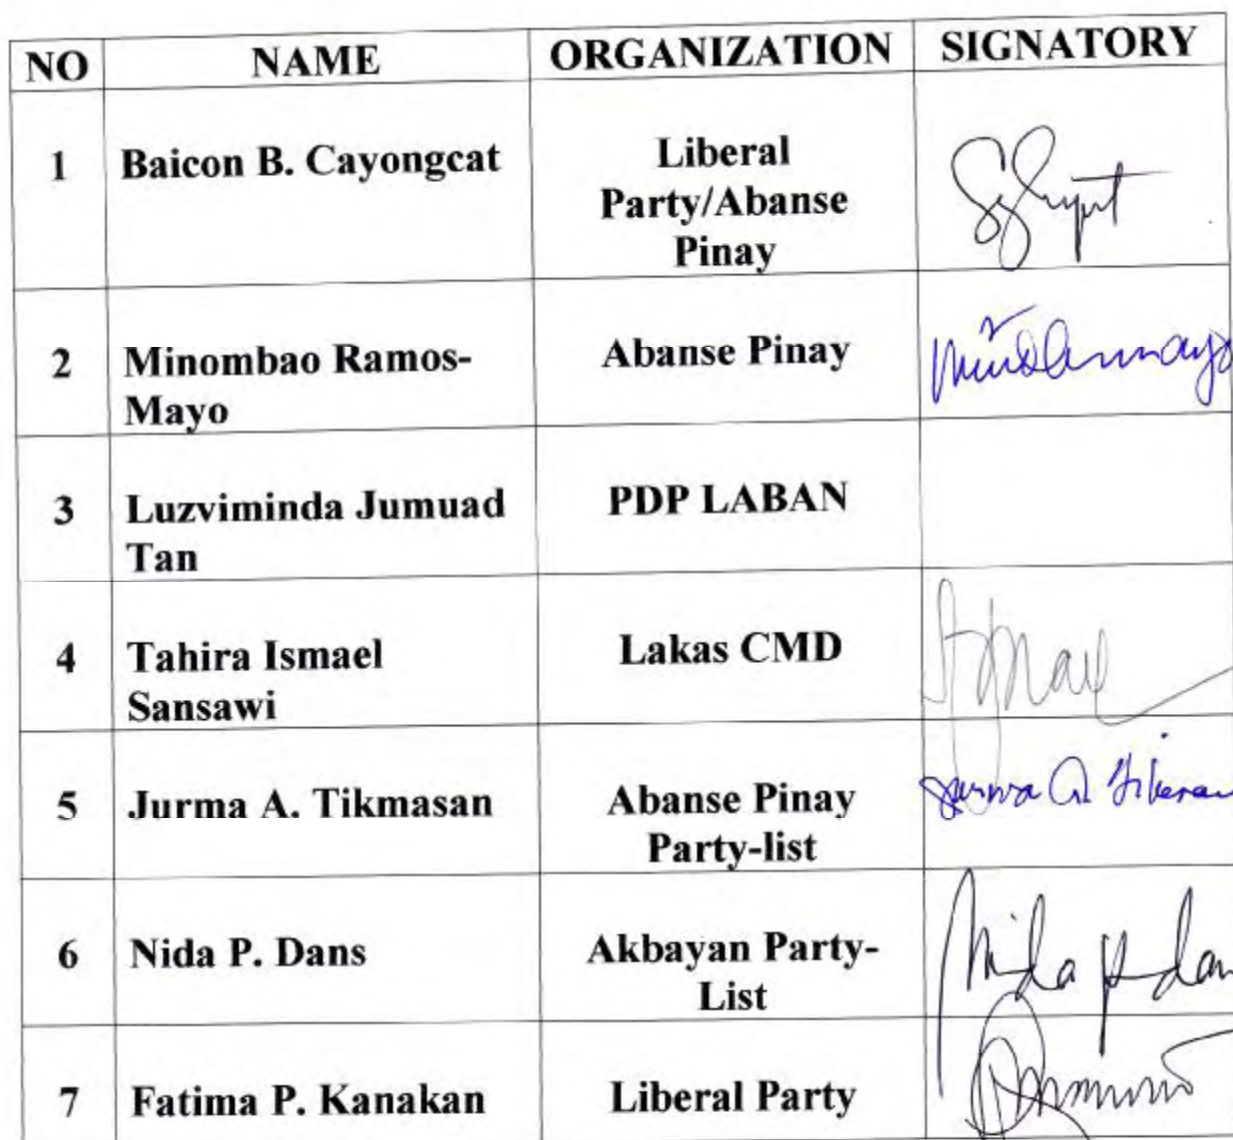 NO NAME ORGANIZATION SIGNATORY
1 Baicon B. Cayongcat Liberal
Party/Abanse
Pinay
2 Minombao Ramos- Abanse Pinay
Mayo
3 Luzviminda Jumuad PDP LABAN
Tan
4 Tahira Ismael Lakas CMD
Sansawi
5 Jurma A. Tikmasan Abanse Pinay
Party-list
6 Nida P. Dans Akbayan Party- Nida P. Dan
List
7 Fatima P. Kanakan Liberal Party